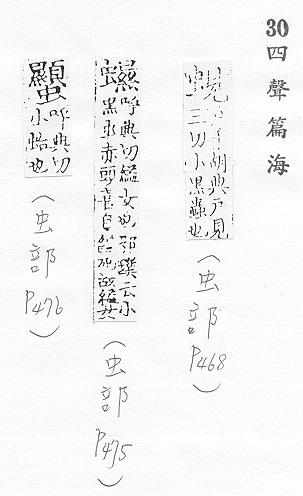 30四聲篇海
蜆 胡典戶見
三切小黑蟲也
(虫部P468)
呼典切縊女也郭璞云小
黑虫赤頭喜自經死故縊女
(虫部P475)
呼典切
小蛤也
(虫部P476)